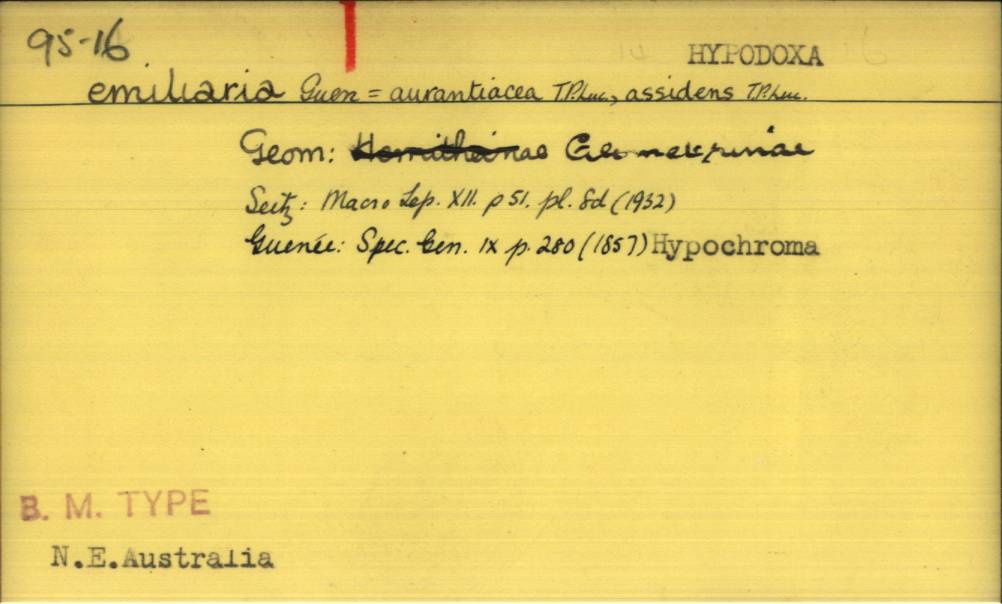 95-16
HYPODOXA
emiliaria Guen = aurantiacea T.P.Luc., assidens T.P.Luc.
Geom: Hemitheinae Geometrinae
Seitz: Macro Lep. XII. p 51. pl. 8d (1932)
Guenée: Spec. Gen. IX p. 280 (1857) Hypochroma
B. M. TYPE
N.E.Australia